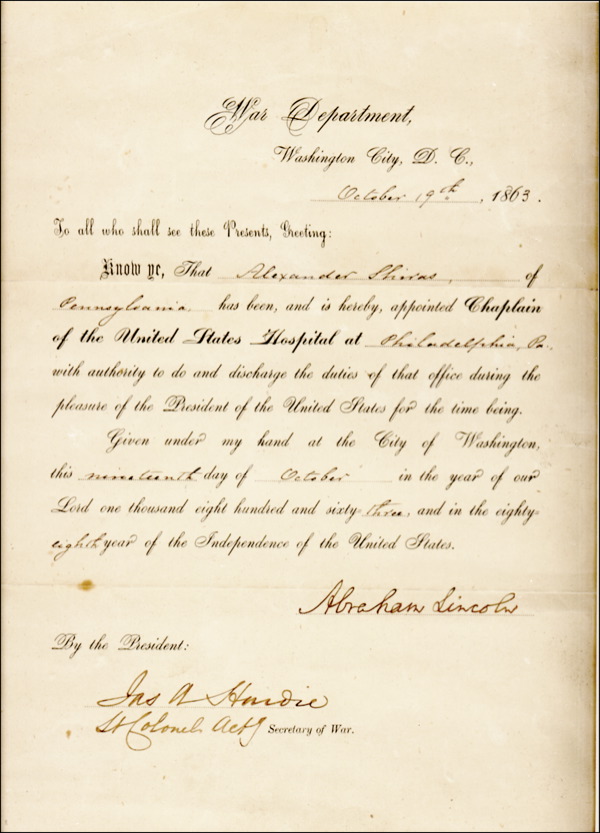 War Department,
Washington City, D. C.,
October 19th, 1863.
To all who shall see these Presents, Greeting:
Know ye, That Alexander Shiras, of
Pennsylvania, has been, and is hereby, appointed Chaplain
of the United States Hospital at Philadelphia, Pa.
with authority to do and discharge the duties of that office during the
pleasure of the President of the United States for the time being.
Given under my hand at the City of Washington,
this nineteenth day of October in the year of our
Lord one thousand eight hundred and sixty-three, and in the eighty-
eighth year of the Independence of the United States.
Abraham Lincoln
By the President:
Jas A Hardie
Lt Colonel Actg Secretary of War.